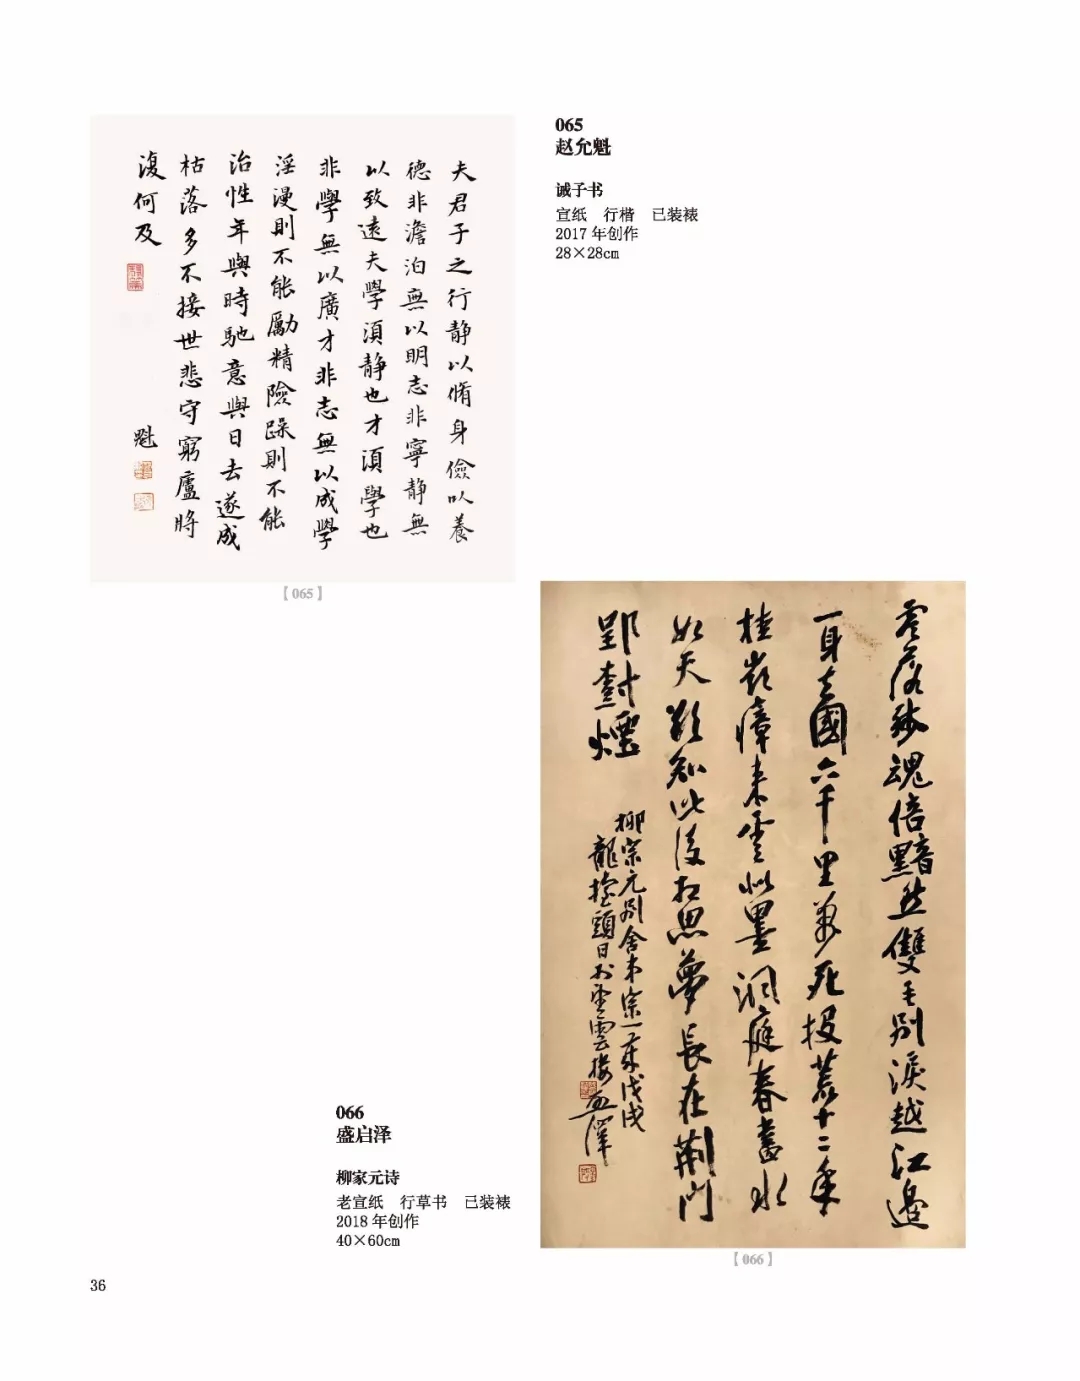 夫君子之行静以脩身儉以養
德非澹泊無以明志非寧静無
以致遠夫學須静也才須學也
非學無以廣才非志無以成學
淫漫則不能勵精險躁則不能
治性年與時馳意與日去遂成
枯落多不接世悲守窮廬將
復何及
魁
【065】
065
赵允魁
诫子书
宣纸 行楷 已装裱
2017 年创作
28×28cm
零落殘魂倍黯然雙毛别淚越江邊
一身去國六千里萬死投荒十二年
桂嶺瘴來雲似墨洞庭春盡水
如天欲知此後相思夢長在荆門
郢樹煙
柳宗元别舍弟宗一 戊戌
龍擡頭日於 雲樓啟澤
【066】
066
盛启泽
柳家元诗
老宣纸 行草书 已装裱
2018 年创作
40×60cm
36